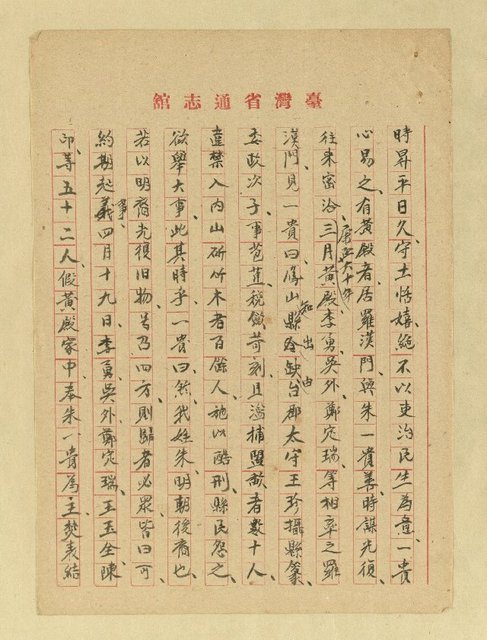 臺灣省通志館
時昇平日久守土恬嬉絕不以吏治民生為意一貴
心易之、有黃殿者居羅漢門與朱一貴善時謀光復、
往來密洽、三月黃殿李勇吳外、鄭定瑞等相率之羅
康熙六十年
漢門、見一貴曰、鳳山縣令缺台郡太守王珍攝縣篆、
知出由
委政次子、事苞苴稅斂苛刻且濫捕盟歃者數十人、
違禁入內山斫竹木者百餘人、施以酷刑縣民怨之、
欲舉大事、此其時乎、一貴曰然、我姓朱、明朝後裔也、
若以明裔光復旧物、号召四方則歸者必眾、皆曰可、
約期起義四月十九日、李勇吳外鄭定瑞、王玉全陳
事、
印等五十二人、假黃殿家中奉朱一貴為主焚表結